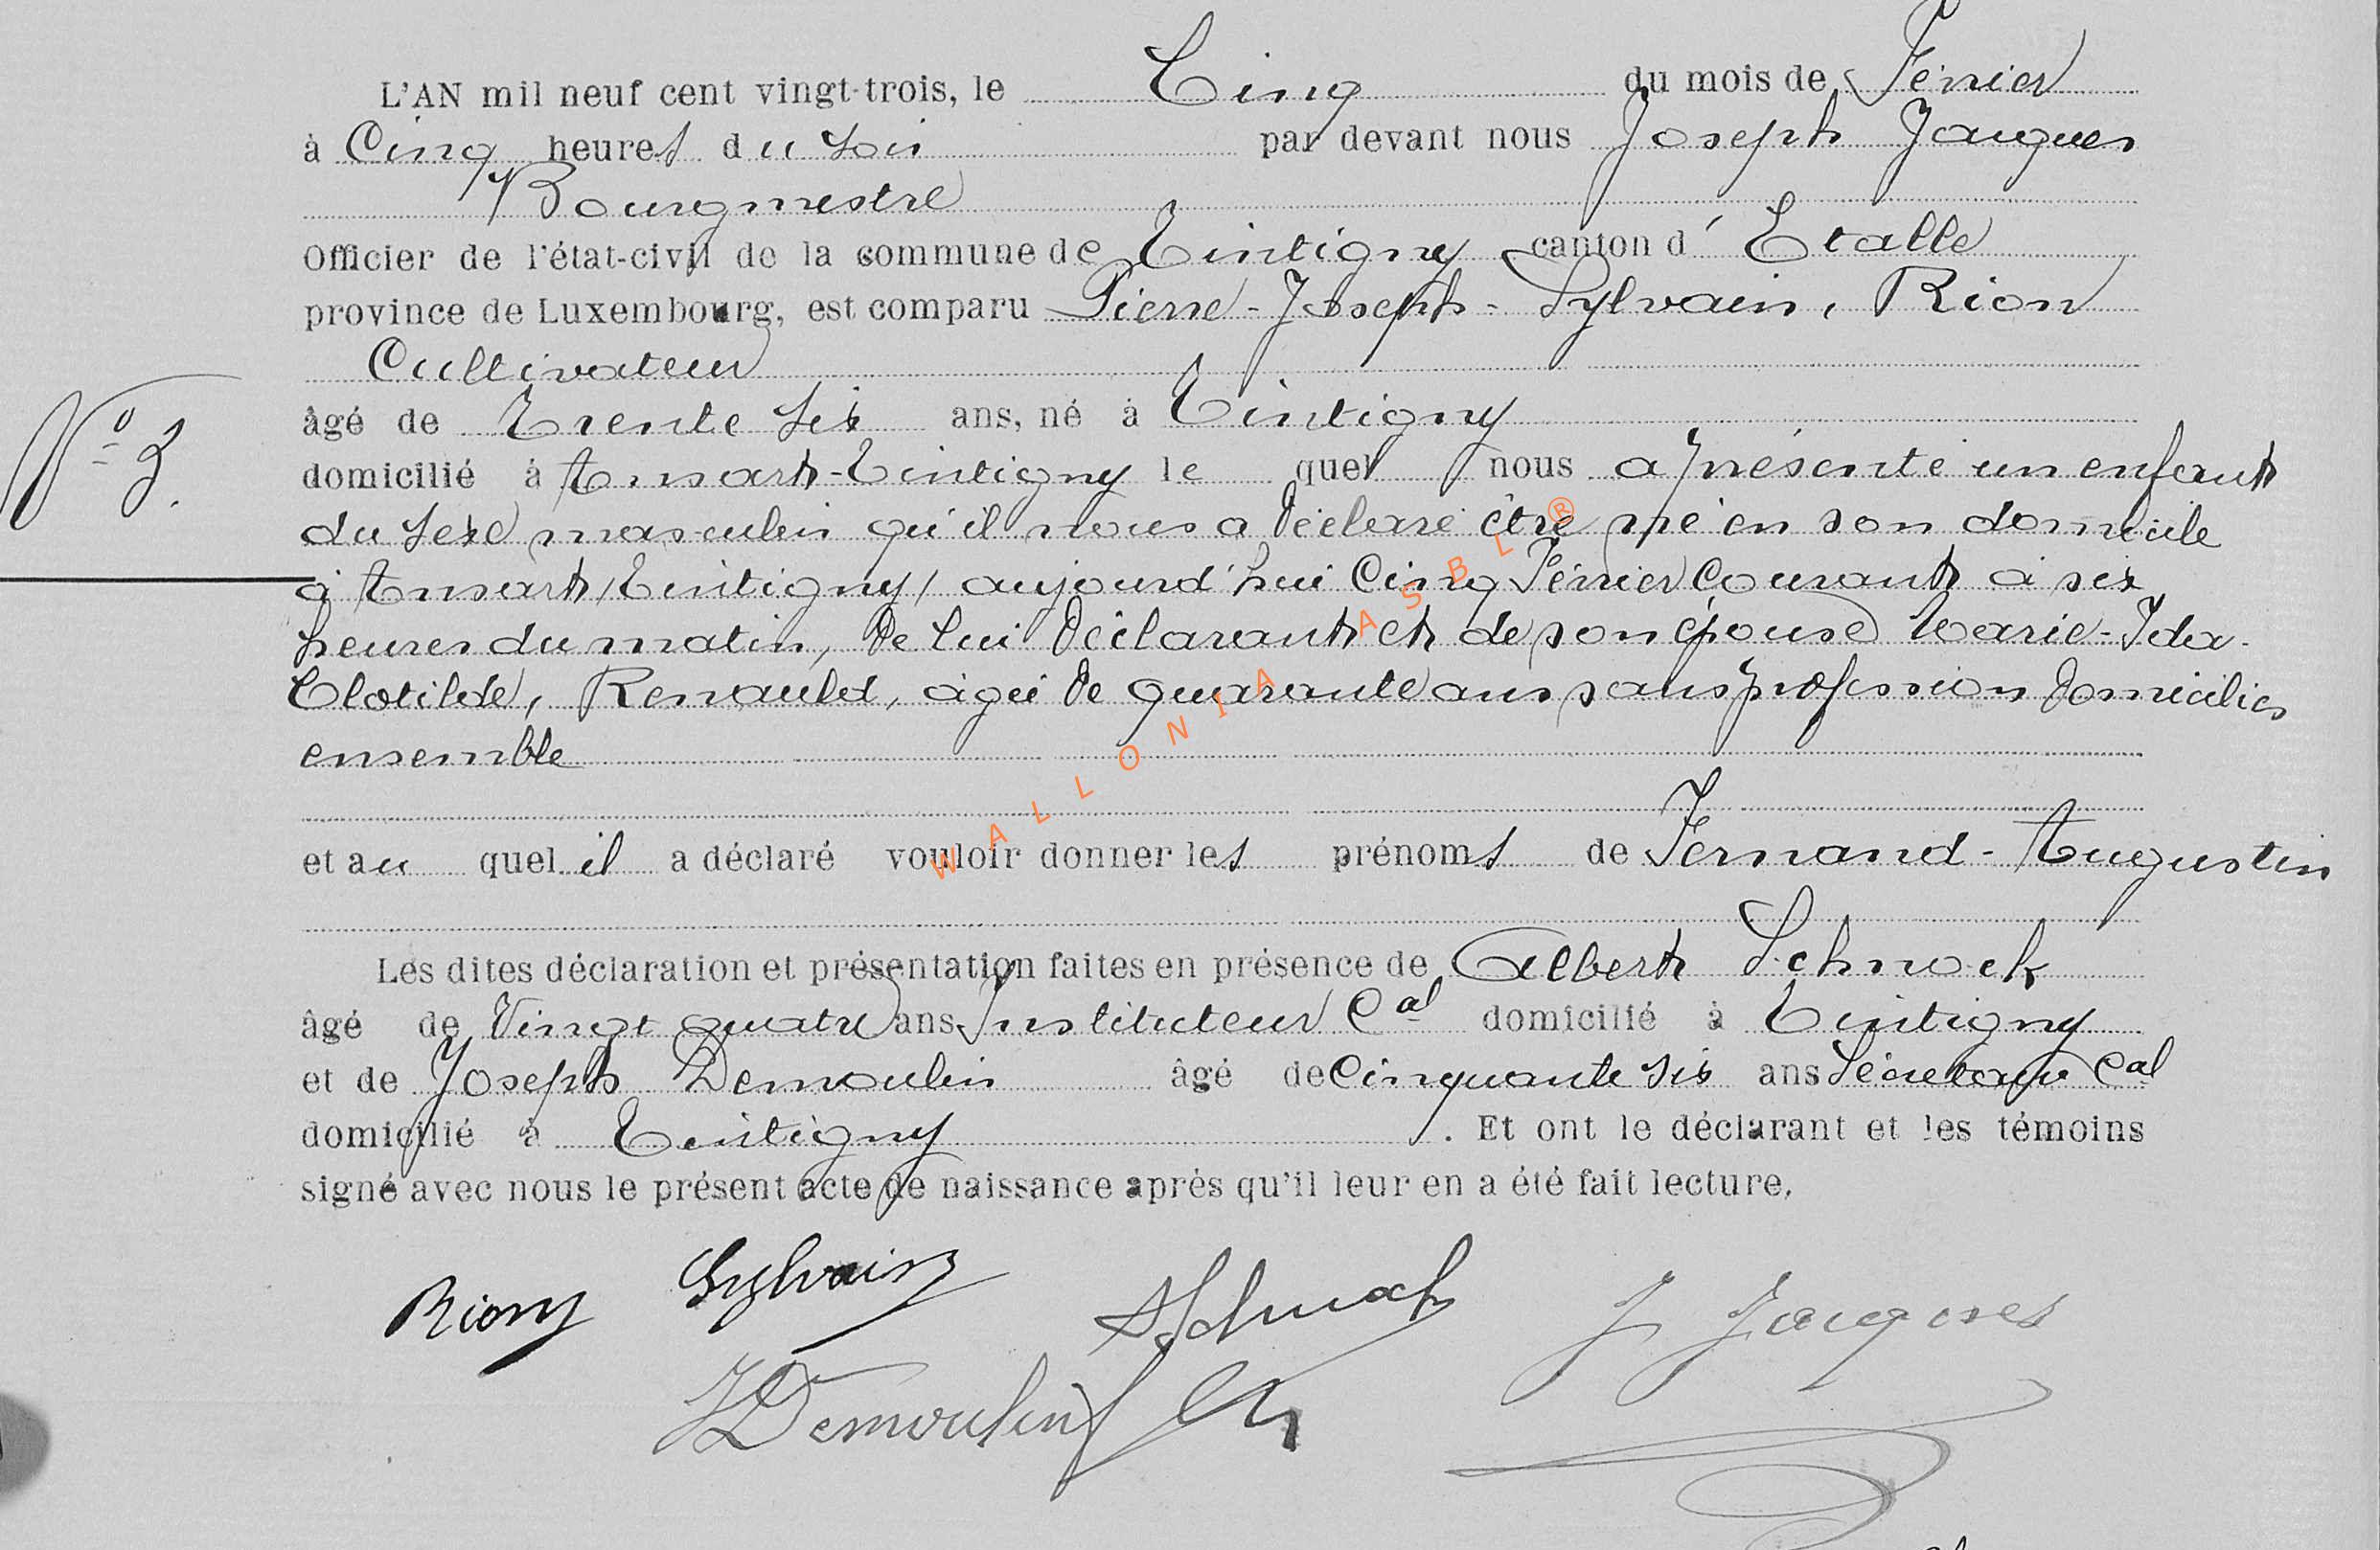 L'AN mil neuf cent vingt-trois, le Cinq du mois de Février
à Cinq heures du soir par devant nous Joseph Jacques
Bourgmestre
Officier de l'état-civil de la commune de Tintigny canton d' Etalle
province de Luxembourg, est comparu Pierre-Joseph-Sylvain, Rion
Cultivateur
âgé de Trente six ans, né à Tintigny
N° 3.
domicilié à Ansart-Tintigny le quel nous a présenté un enfant
du sexe masculin qu'il nous a déclaré être né en son domicile
à Ansart /Tintigny/ aujourd'hui Cinq Février Courant à six
heures du matin, de lui déclarant et de son épouse Marie-Ida-
Clotilde, Renauld, agée de quarante ans sans profession domiciliés
ensemble
WALLONIA ASBL ®
et au quel il a déclaré vouloir donner les prénoms de Fernand-Augustin
Les dites déclaration et présentation faites en présence de Albert Schmock
âgé de Vingt quatre ans Instituteur Cal domicilié à Tintigny
et de Joseph Demoulin âgé de Cinquante six ans Secrétaire Cal
domicilié à Tintigny . Et ont le déclarant et les témoins
signé avec nous le présent acte de naissance après qu'il leur en a été fait lecture.
Rion Sylvain ASchmock J Jacques
JDemoulin